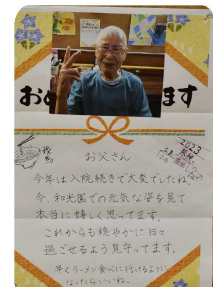 お ます
お父さん
2023
今年は入院続きで大変でしたね。
今、和光園での元気な姿を見て
本当に嬉しく思ってます。
これからも穏やかに日々
過ごせるよう見守ってます。
早くラーメン食べに行けるように
なったらいいね。